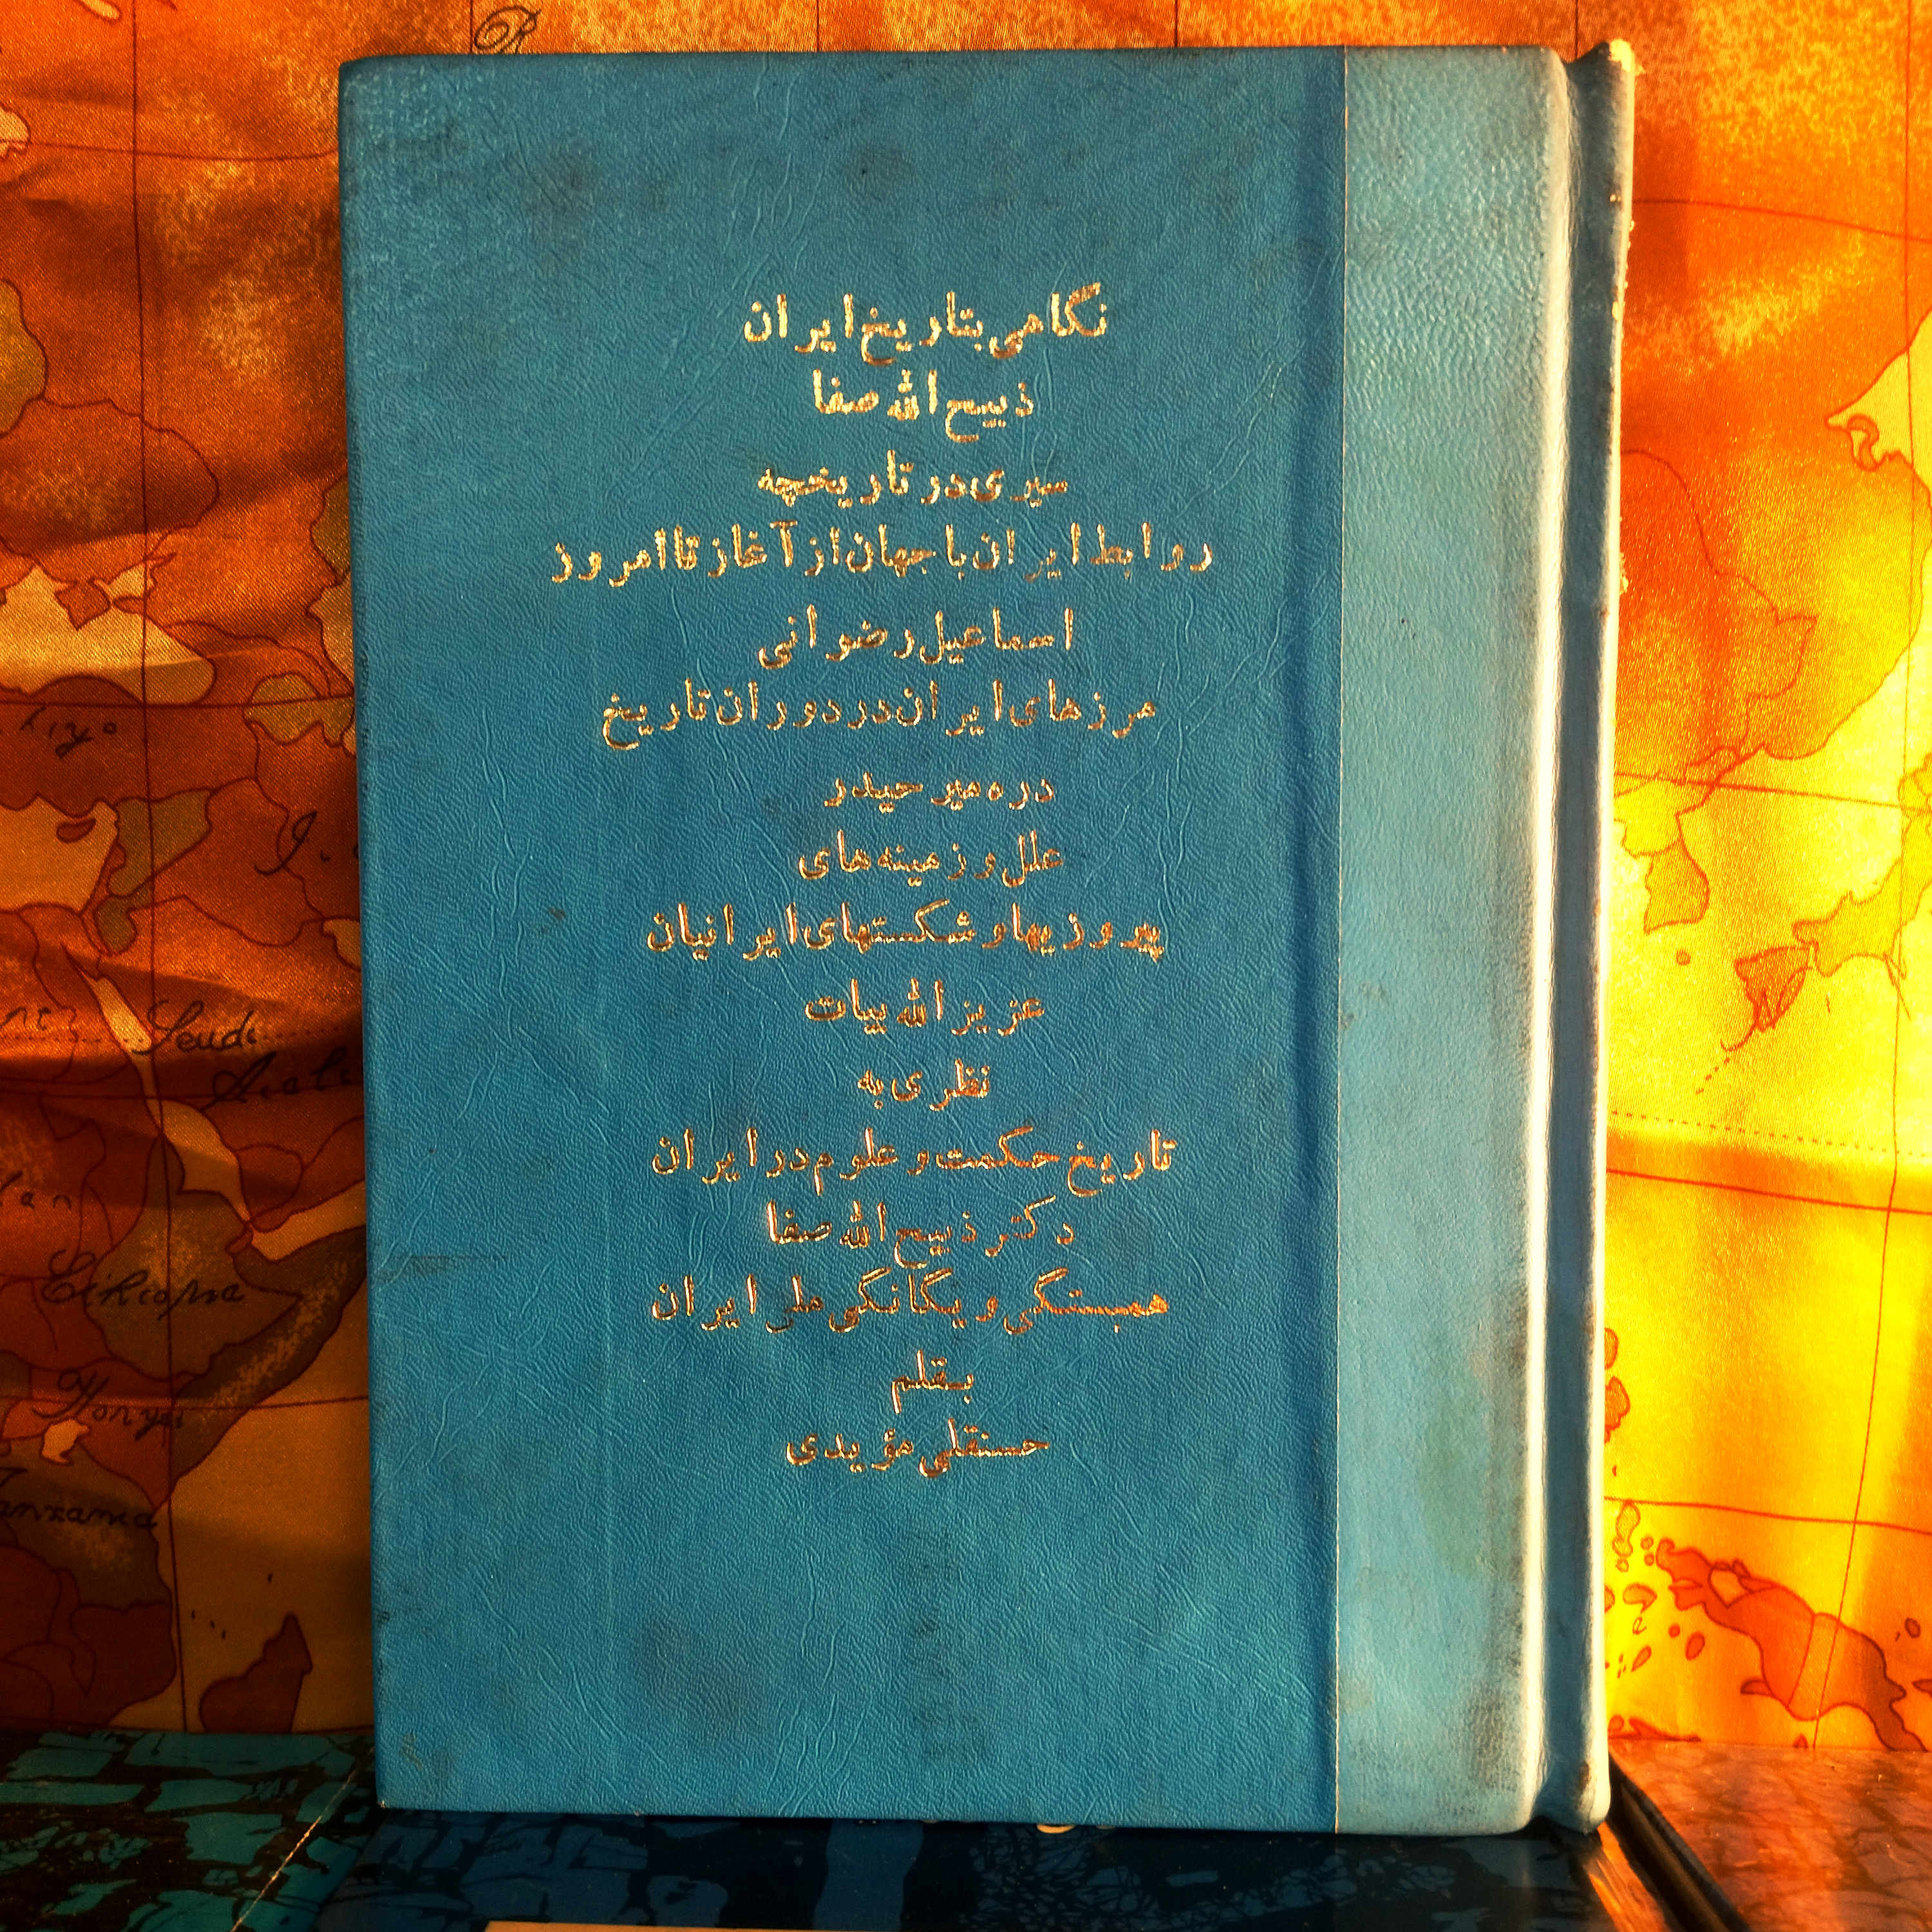 نگاهی بتاریخ ایران
ذبیح الله صفا
سیری در تاریخچه
روابط ایران با جهان از آغاز تا امروز
اسماعیل رضوانی
مرزهای ایران در دوران تاریخ
دره میر حیدر
علل و زمینه های
پیروزیها و شکستهای ایرانیان
عزیز الله بیات
نظری به
تاریخ حکمت و علوم در ایران
دکتر ذبیح الله صفا
همبستگی و یگانگی ملی ایران
بقلم
حسنقلی مؤیدی
Saudi
Kenya
Tanzania